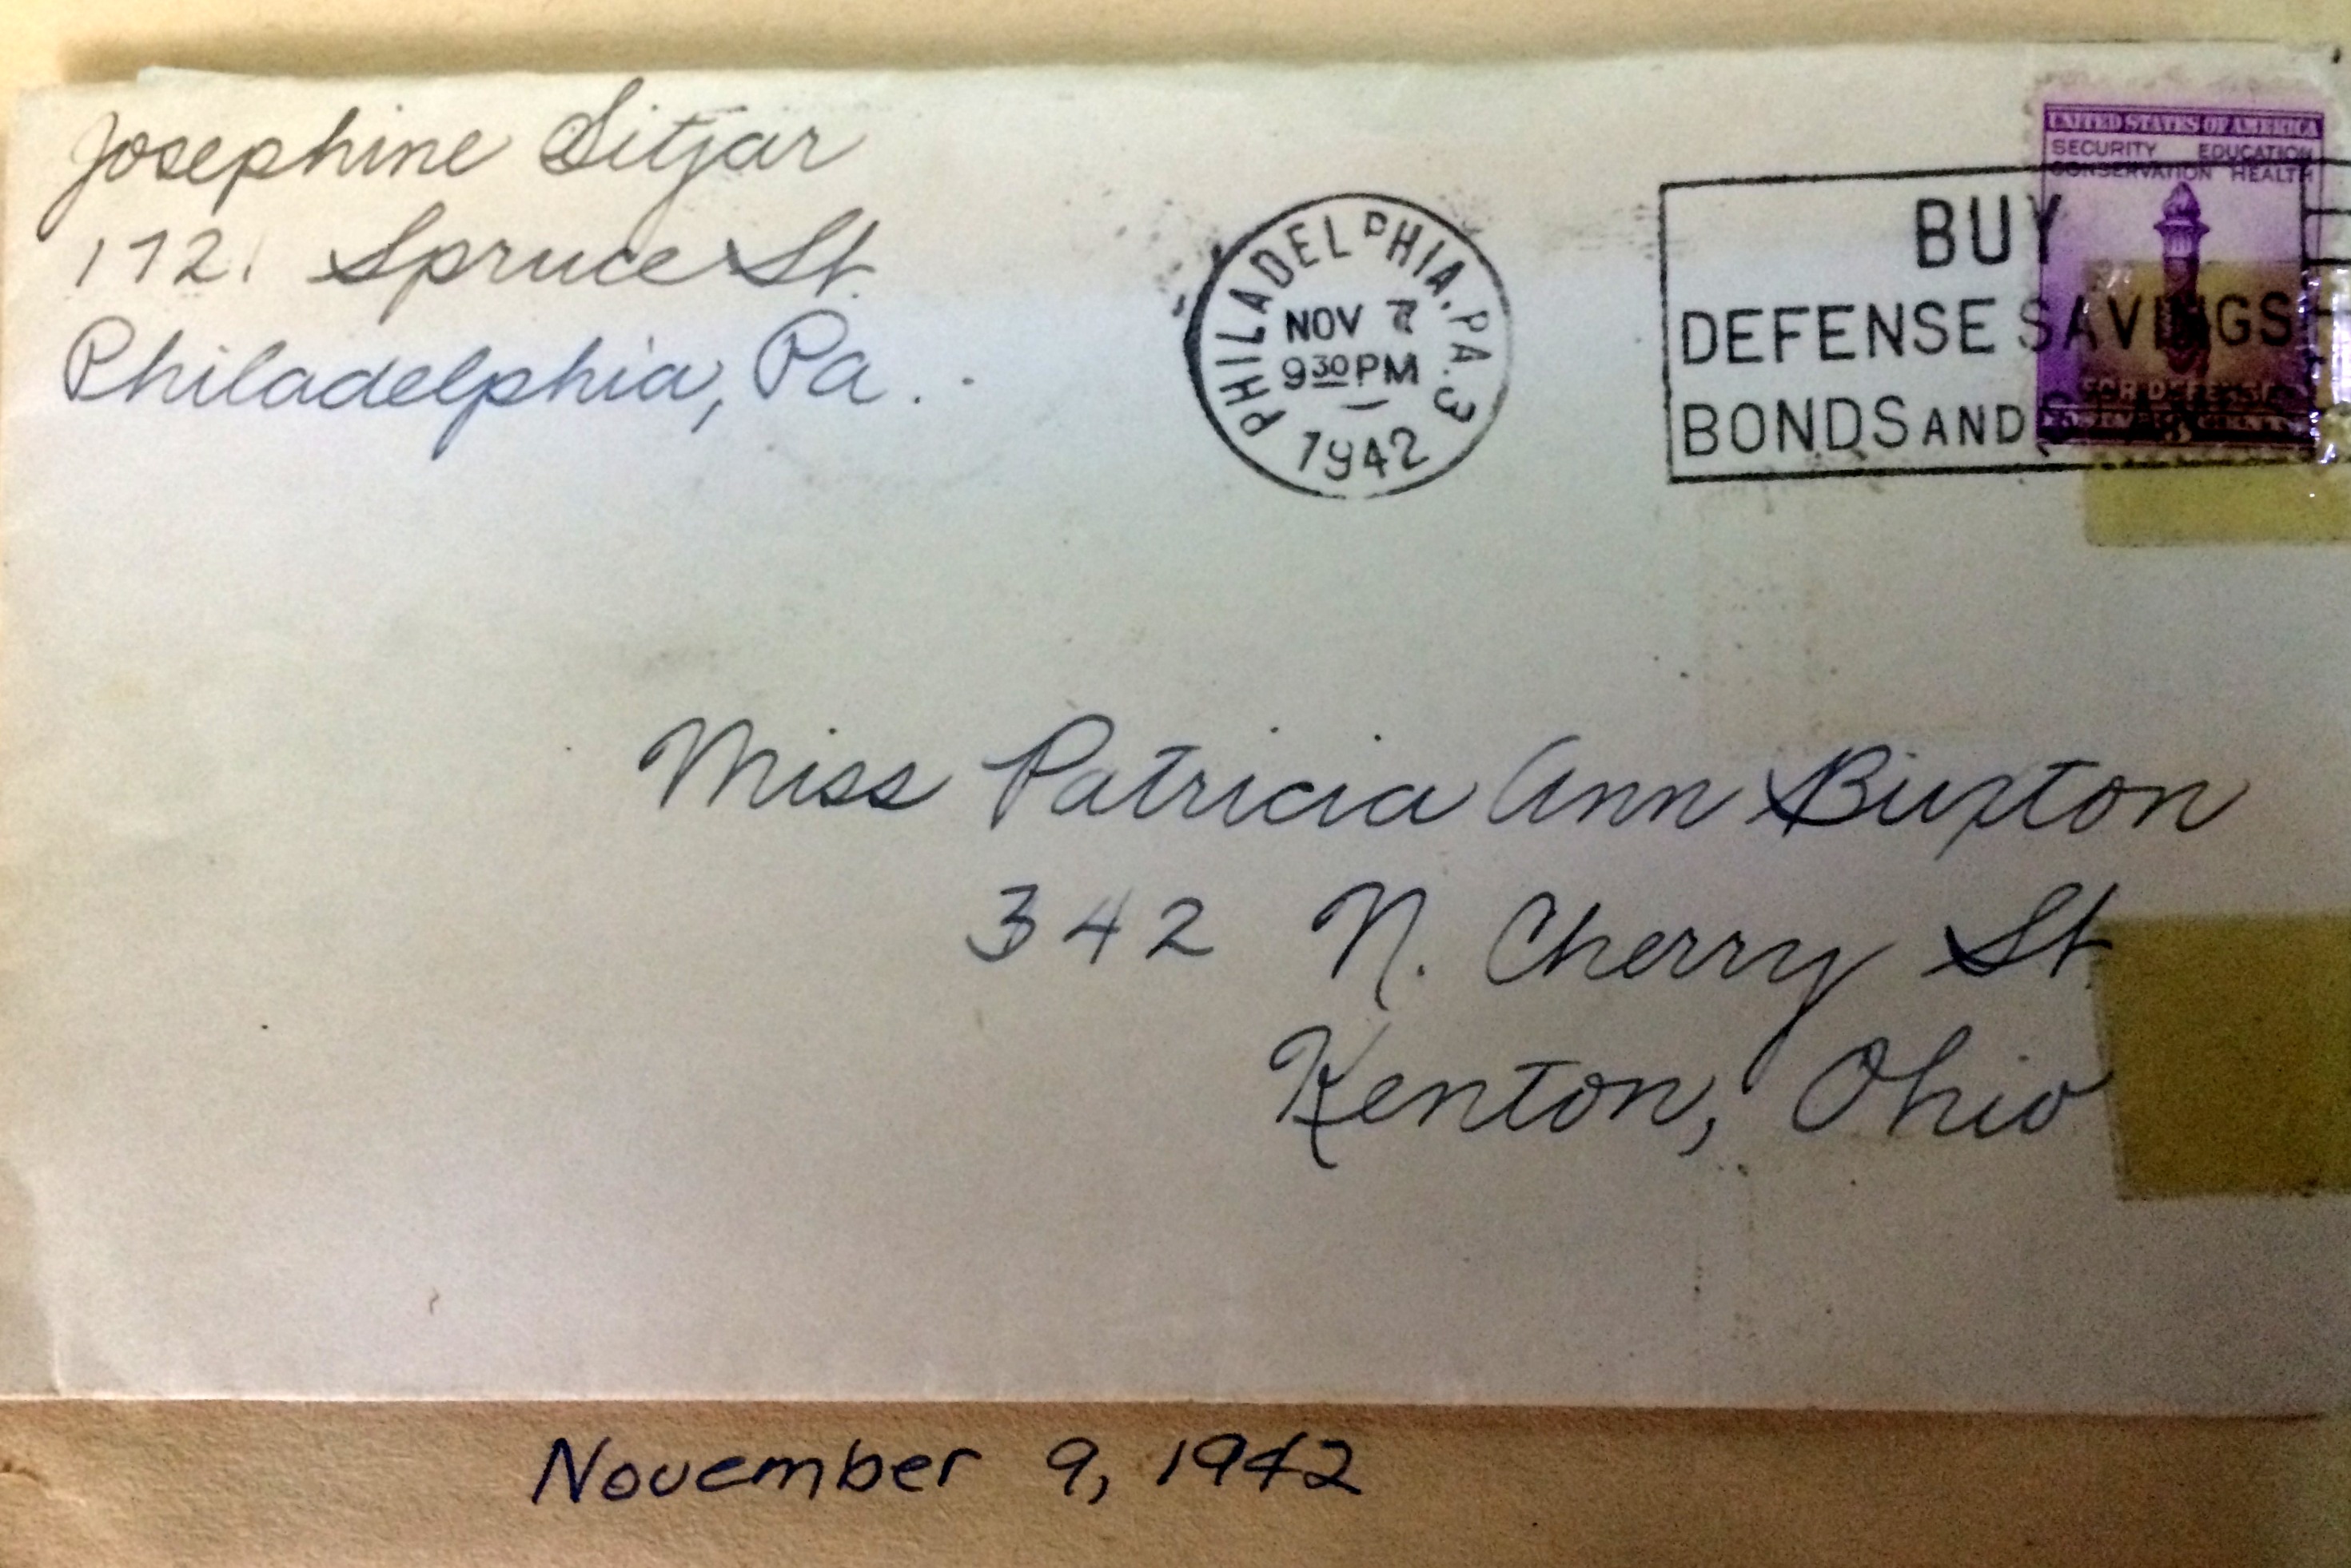 Josephine Sitjar
1721 Spruce St.
Philadelphia, Pa.
PHILADELPHIA, PA. 3
NOV 7
9 30 PM
1942
BUY
DEFENSE SAVINGS
BONDS AND
UNITED STATES OF AMERICA
SECURITY EDUCATION
CONSERVATION HEALTH
FOR DEFENSE
CENTS
Miss Patricia Ann Buxton
342 N. Cherry St
Kenton, Ohio
November 9, 1942